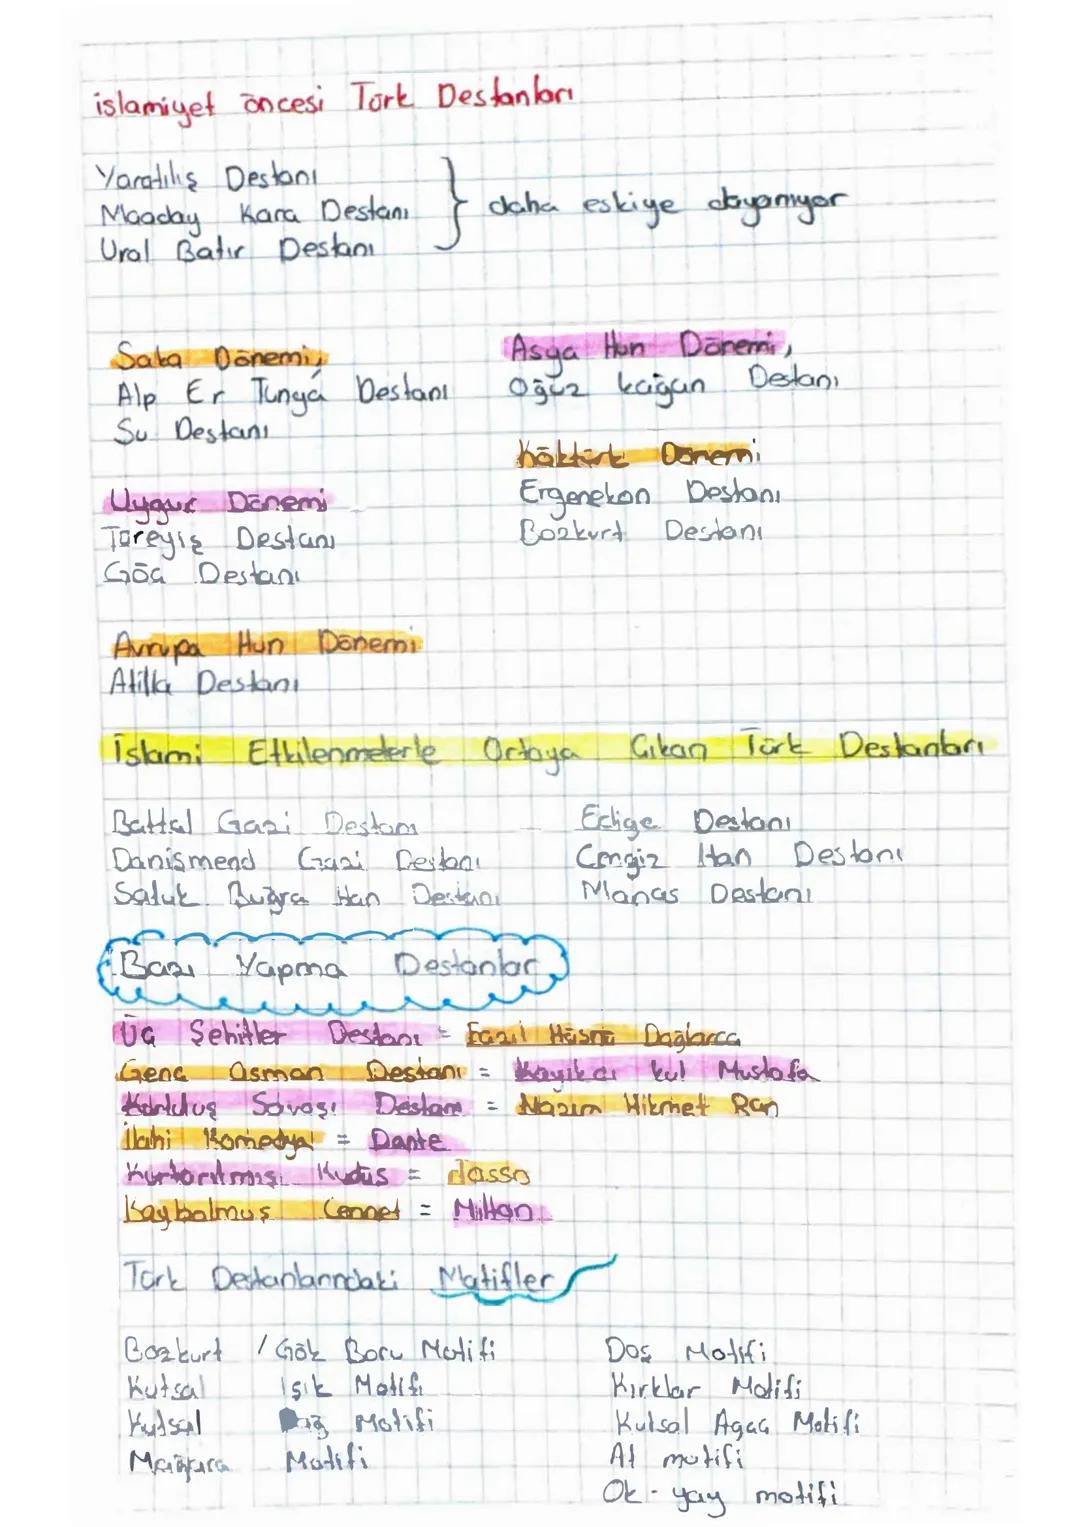 islamiyet öncesi Türk Destanları
Yaratılış Destanı
Maaday Kara Destanı
Ural Batır Destanı
daha eskiye dayanıyor
Saka Dönemi,
Alp Er Tunga Destanı
Şu Destanı
Asya Hun Dönemi,
Oğuz kağan Destanı
Köktürk Dönemi
Ergenekon Destanı
Bozkurt Destanı
Uygur Dönemi
Türeyiş Destanı
Göç Destanı
Avrupa Hun Dönemi
Atilla Destanı
İslami Etkilenmelerle Ortaya Çıkan Türk Destanları
Battal Gazi Destanı
Danişmend Gazi Destanı
Satuk Buğra Han Destanı
Edige Destanı
Cengiz Han Destanı
Manas Destanı
Bazı Yapma Destanlar
Üç Şehitler Destanı = Fazıl Hüsnü Dağlarca
Genç Osman Destanı = Kayıkçı kul Mustafa
Kurtuluş Savaşı Destanı = Nazım Hikmet Ran
İlahi Komedya = Dante
Kurtarılmış Kudüs = Tasso
Kaybolmuş Cennet = Milton
Türk Destanlarındaki Motifler
Bozkurt / Gök Börü Motifi
Kutsal Işık Motifi
Kutsal Dağ Motifi
Mağara Motifi
Düş Motifi
Kırklar Motifi
Kutsal Ağaç Motifi
At motifi
Ok - yay motifi